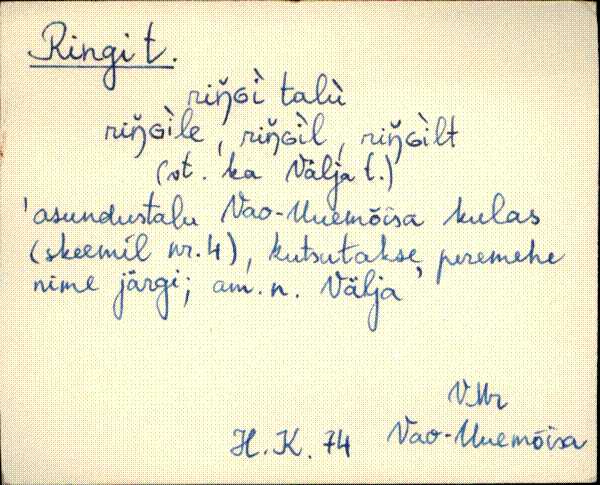 Ringi t.
riŋ̆Gì talù
riŋ̆Gìle, riŋ̆Gìl, riŋ̆Gìlt
(vt. ka Välja t.)
'asundustalu Vao-Uuemõisa külas
(skeemil nr. 4), kutsutakse peremehe
nime järgi; am. n. Välja'
V.Mr
H.K. 74 Vao-Uuemõisa